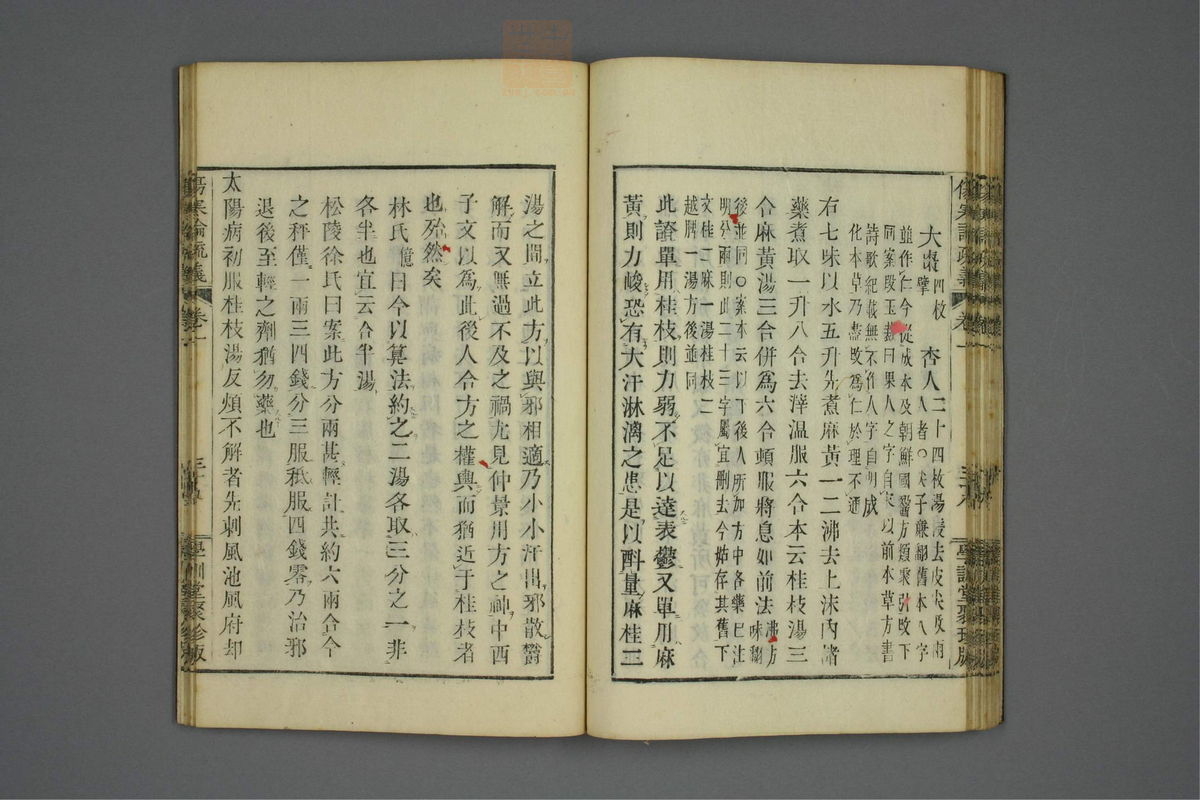 大棗擘四枚 杏人二十四枚湯浸去皮尖及兩
人者○尖子赫翻舊本八字
並作仁今從成本及朝鮮國醫方類聚引改下
同案段玉裁曰果人之字自宋以前本草方書
詩歌紀載無不作人字自明成
化本草乃盡改爲仁於理不通
右七味以水五升先煮麻黃一二沸去上沫內諸
藥煮取一升八合去滓温服六合本云桂枝湯三
合麻黃湯三合併爲六合頓服將息如前法沸方味翻
後並同○案本云以下後人所加方中各藥巳注
明分兩則此二十三字屬宜刪去今姑存其舊下
文桂二麻一湯桂枝二
越脾一湯方後並同
此證單用桂枝則力弱不足以達表鬱又單用麻
黃則力峻恐有大汗淋漓之患是以酙量麻桂二
湯之間立此方以與邪相適乃小小汗出邪散鬱
解而又無過不及之禍尤見仲景用方之神中西
子文以爲此後人合方之權輿而猶近于桂枝者
也殆然矣
林氏億曰今以算法約之二湯各取三分之一非
各半也宜云合半湯
松陵徐氏曰案此方分兩甚輕計共約六兩合今
之秤僅一兩三四錢分三服秪服四錢零乃治邪
退後至輕之劑猶勿藥也
太陽病初服桂枝湯反煩不解者先刺風池風府却
傷寒論疏義 卷一
學訓堂聚珍版